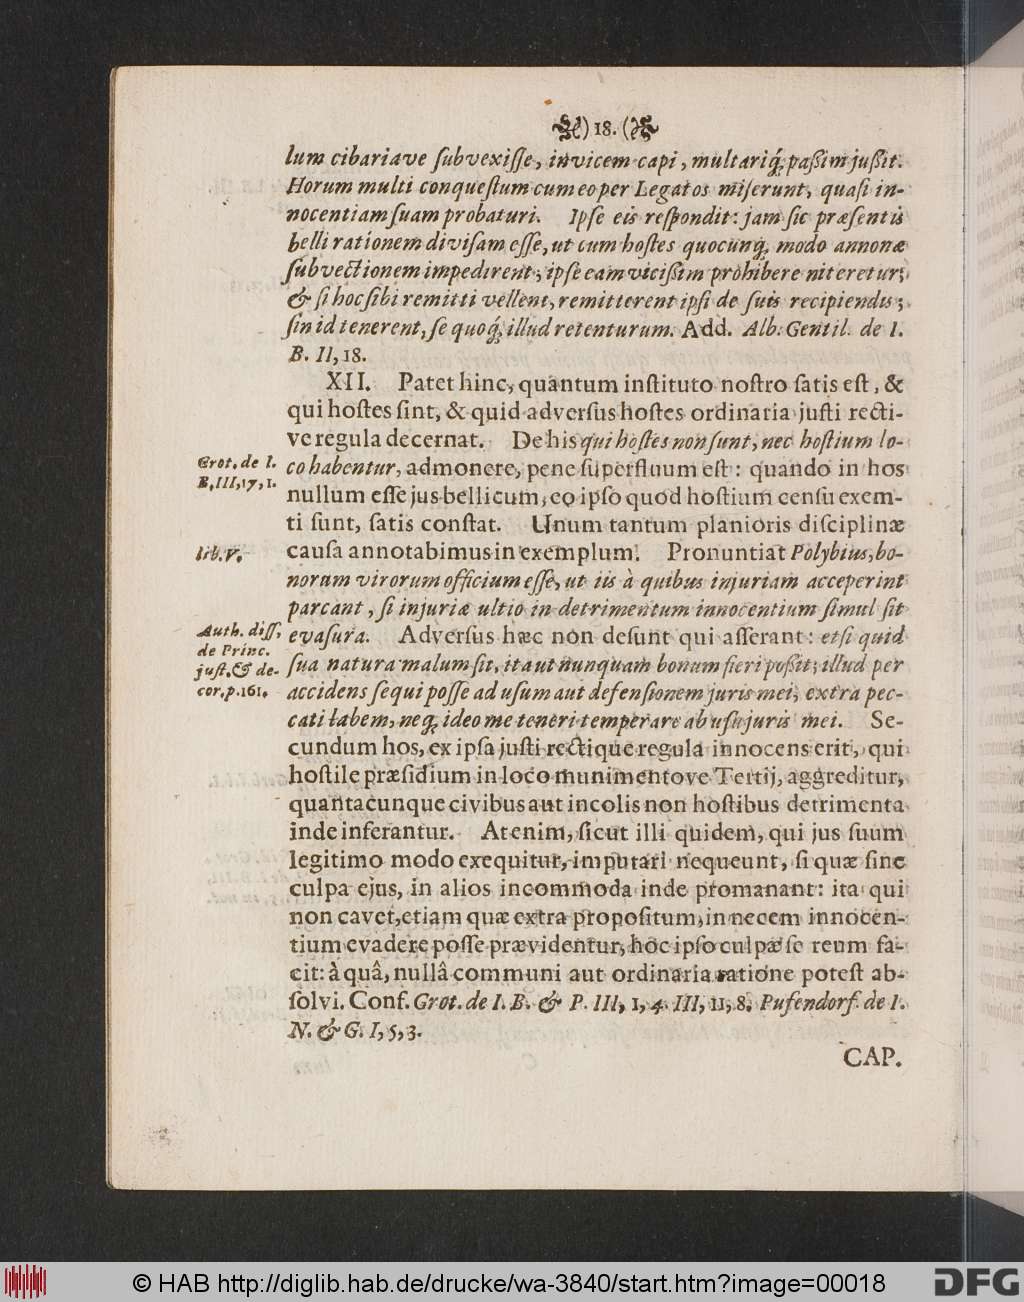 ) 18. (
lum cibariave ſubvexiſſe, invicem capi, multariq́; paßim jußit.
Horum multi conqueſtum cum eo per Legatos miſerunt, quaſi in-
nocentiam ſuam probaturi. Ipſe eis reſpondit: jam ſic præſentis
belli rationem diviſam eſſe, ut cum hoſtes quocunq́; modo annonæ
ſubvectionem impedirent, ipſe eam vicißim prohibere niteretur;
& ſi hoc ſibi remitti vellent, remitterent ipſi de ſuis recipiendis;
ſin id tenerent, ſe quoq́; illud retenturum. Add. Alb. Gentil. de I.
B. II, 18.
XII. Patet hinc, quantum inſtituto noſtro ſatis eſt, &
qui hoſtes ſint, & quid adverſus hoſtes ordinaria juſti recti-
ve regula decernat. De his qui hoſtes non ſunt, nec hoſtium lo-
Grot. de I.
B. III, 17, 1.
co habentur, admonere, pene ſuperfluum eſt: quando in hos
nullum eſſe jus bellicum, eo ipſo quod hoſtium cenſu exem-
ti ſunt, ſatis conſtat. Unum tantum planioris diſciplinæ
lib. V.
cauſa annotabimus in exemplum. Pronuntiat Polybius, bo-
norum virorum officium eſſe, ut iis à quibus injuriam acceperint
parcant, ſi injuriæ ultio in detrimentum innocentium ſimul ſit
Auth. diſſ.
de Princ.
juſt. & de-
cor. p. 161.
evaſura. Adverſus hæc non deſunt qui aſſerant: etſi quid
ſua natura malum ſit, ita ut nunquam bonum fieri poßit; illud per
accidens ſequi poſſe ad uſum aut defenſionem juris mei, extra pec-
cati labem, neq́; ideo me teneri temperare ab uſu juris mei. Se-
cundum hos, ex ipſa juſti rectique regula innocens erit, qui
hoſtile præſidium in loco munimentove Tertij, aggreditur,
quantacunque civibus aut incolis non hoſtibus detrimenta
inde inferantur. At enim, ſicut illi quidem, qui jus ſuum
legitimo modo exequitur, imputari nequeunt, ſi quæ ſine
culpa ejus, in alios incommoda inde promanant: ita qui
non cavet, etiam quæ extra propoſitum, in necem innocen-
tium evadere poſſe prævidentur, hoc ipſo culpæ ſe reum fa-
cit: à quâ, nullâ communi aut ordinaria ratione poteſt ab-
ſolvi. Conf. Grot. de I. B. & P. III, 1, 4. III, 11, 8. Pufendorf. de I.
N. & G. I, 5, 3.
CAP.
© HAB http://diglib.hab.de/drucke/wa-3840/start.htm?image=00018
DFG